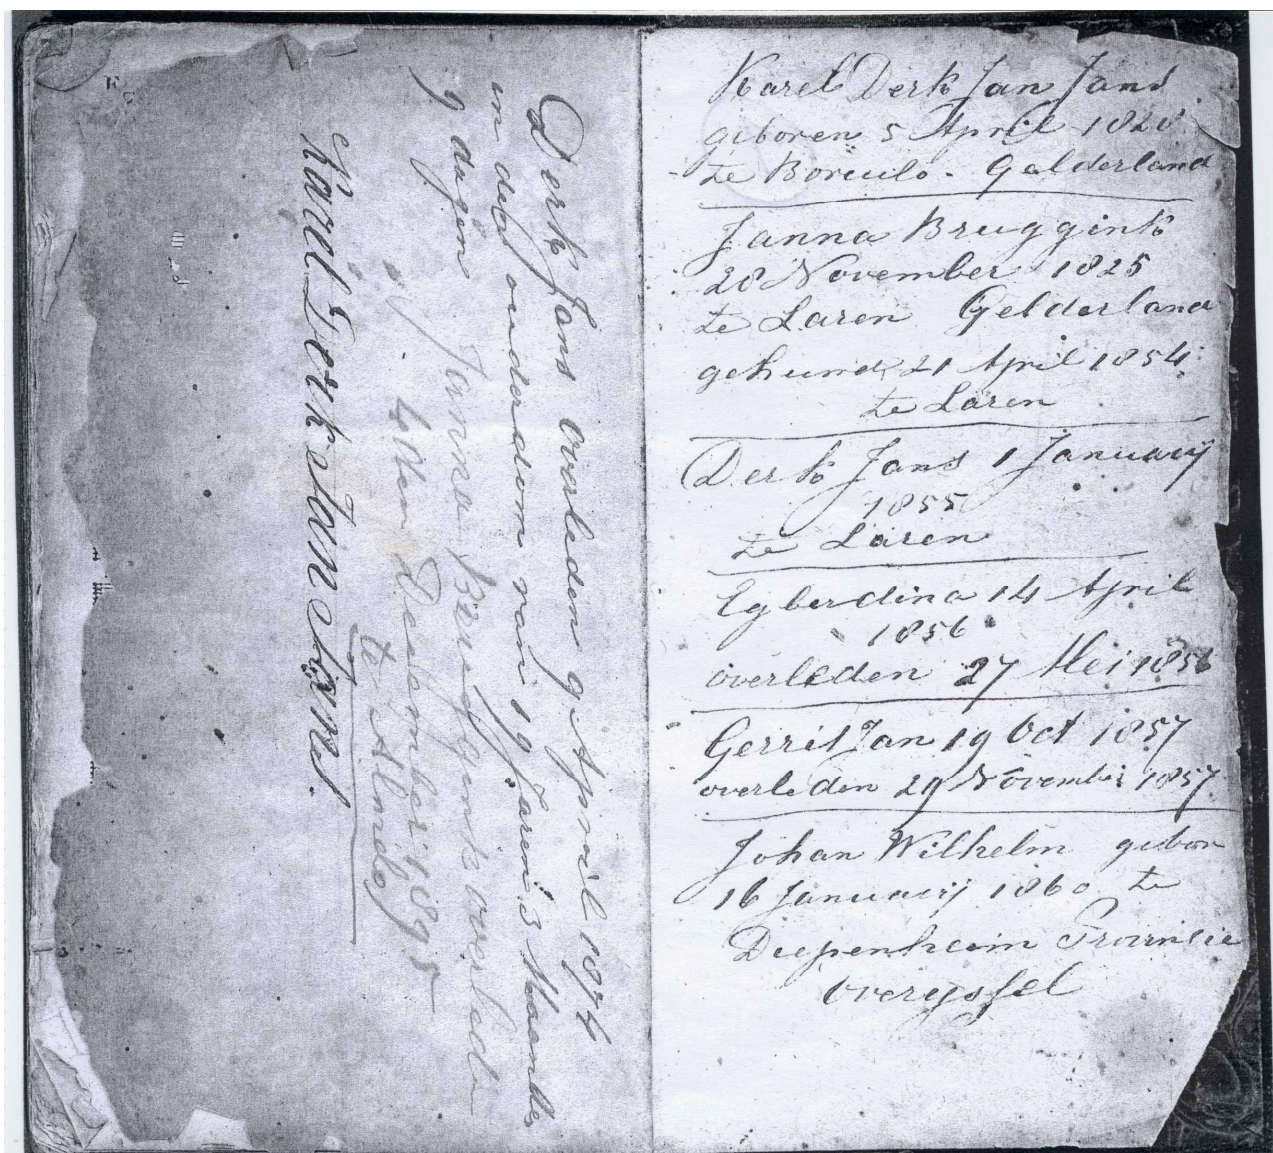 Derk Jans overleden 9 April 1874
in den ouderdom van 19 Jaren 3 Maanden
9 dagen
Janna Bruggink overleden
4 den December 1895
te Almelo
Karel Derk Jan Jans
Karel Derk Jan Jans
geboren 5 April 1828
te Borculo. Gelderland
Janna Bruggink
28 November 1825
te Laren Gelderland
gehuuwd 21 April 1854
te Laren
Derk Jans 1 Januarij
1855
te Laren
Egberdina 14 April
1856
overleden 27 Mei 1856
Gerrit Jan 19 Oct 1857
overleden 29 November 1857
Johan Wilhelm gebon
16 Januarij 1860 te
Diepenheim Provincie
Overyssel